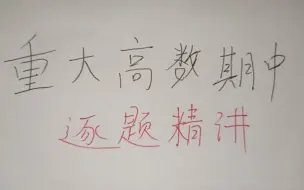 重大高数期中
逐题精讲